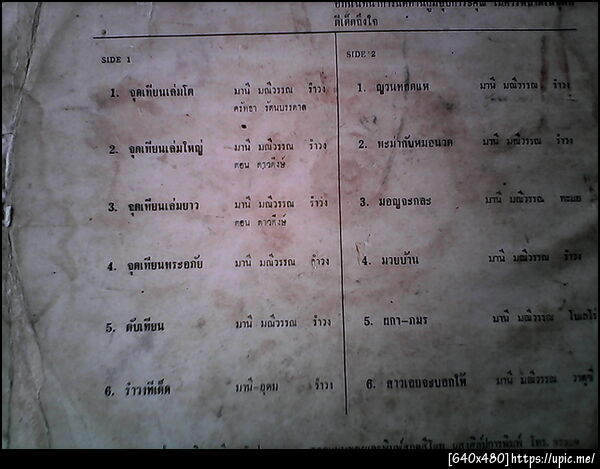 ตีเด็ดถึงใจ
SIDE 1
1. จุดเทียนเล่มโต มานี มณีวรรณ รำวง
ศรัทธา รัตนบรรดาล
2. จุดเทียนเล่มใหญ่ มานี มณีวรรณ รำวง
ดอน ดาวดึงษ์
3. จุดเทียนเล่มยาว มานี มณีวรรณ รำวง
ดอน ดาวดึงษ์
4. จุดเทียนพระอภัย มานี มณีวรรณ รำวง
5. ดับเทียน มานี มณีวรรณ รำวง
6. รำวงทีเด็ด มานี-อุดม รำวง
SIDE 2
1. ญวนทอดแห มานี มณีวรรณ รำวง
2. พะม่ากับหมอนวด มานี มณีวรรณ รำวง
3. มอญจะกละ มานี มณีวรรณ
4. มวยบ้าน มานี มณีวรรณ รำวง
5. ผกา-ภมร มานี มณีวรรณ
6. สาวเอยจะบอกให้ มานี มณีวรรณ
[640x480]https://upic.me/